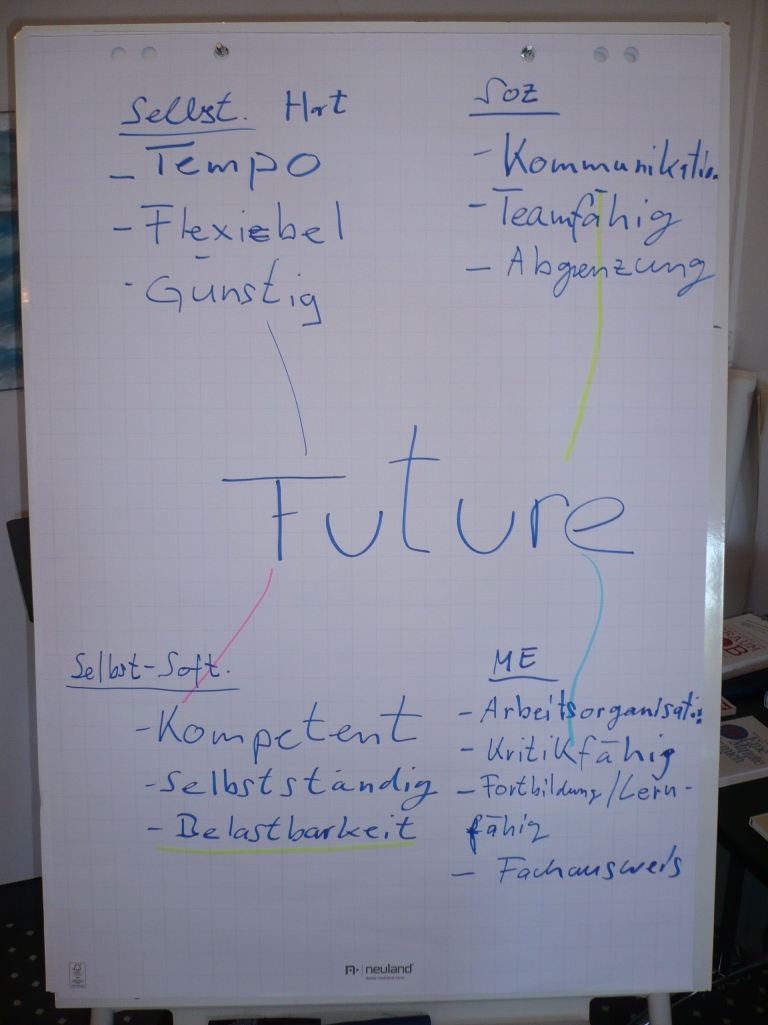 Selbst. Hart
- Tempo
- Flexiebel
- Günstig
Soz
- Kommunikation
- Teamfähig
- Abgrenzung
Future
Selbst-Soft.
- Kompetent
- Selbstständig
- Belastbarkeit
ME
- Arbeitsorganisati.
- Kritikfähig
- Fortbildung/Lern-
fähig
- Fachausweis
neuland